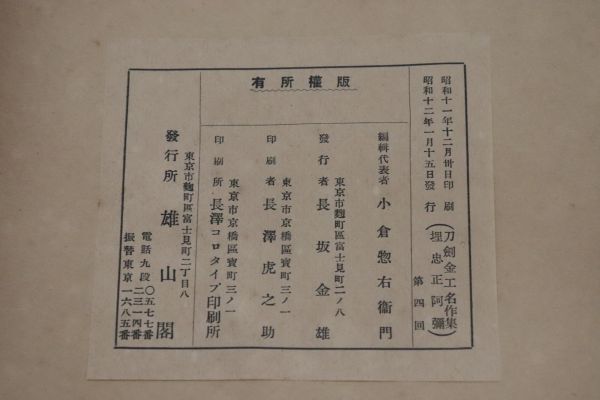 昭和十一年十二月卅日印刷
昭和十二年一月十五日發行
(刀劍金工名作集
埋忠正阿彌)
第四回
版權所有
編輯代表者 小倉惣右衞門
東京市麴町區富士見町二ノ八
發行者 長坂金雄
東京市京橋區寶町三ノ一
印刷者 長澤虎之助
東京市京橋區寶町三ノ一
印刷所 長澤コロタイプ印刷所
東京市麴町區富士見町二丁目八
發行所 雄山閣
電話九段 〇五七七番
二三一四番
振替東京一六八五番